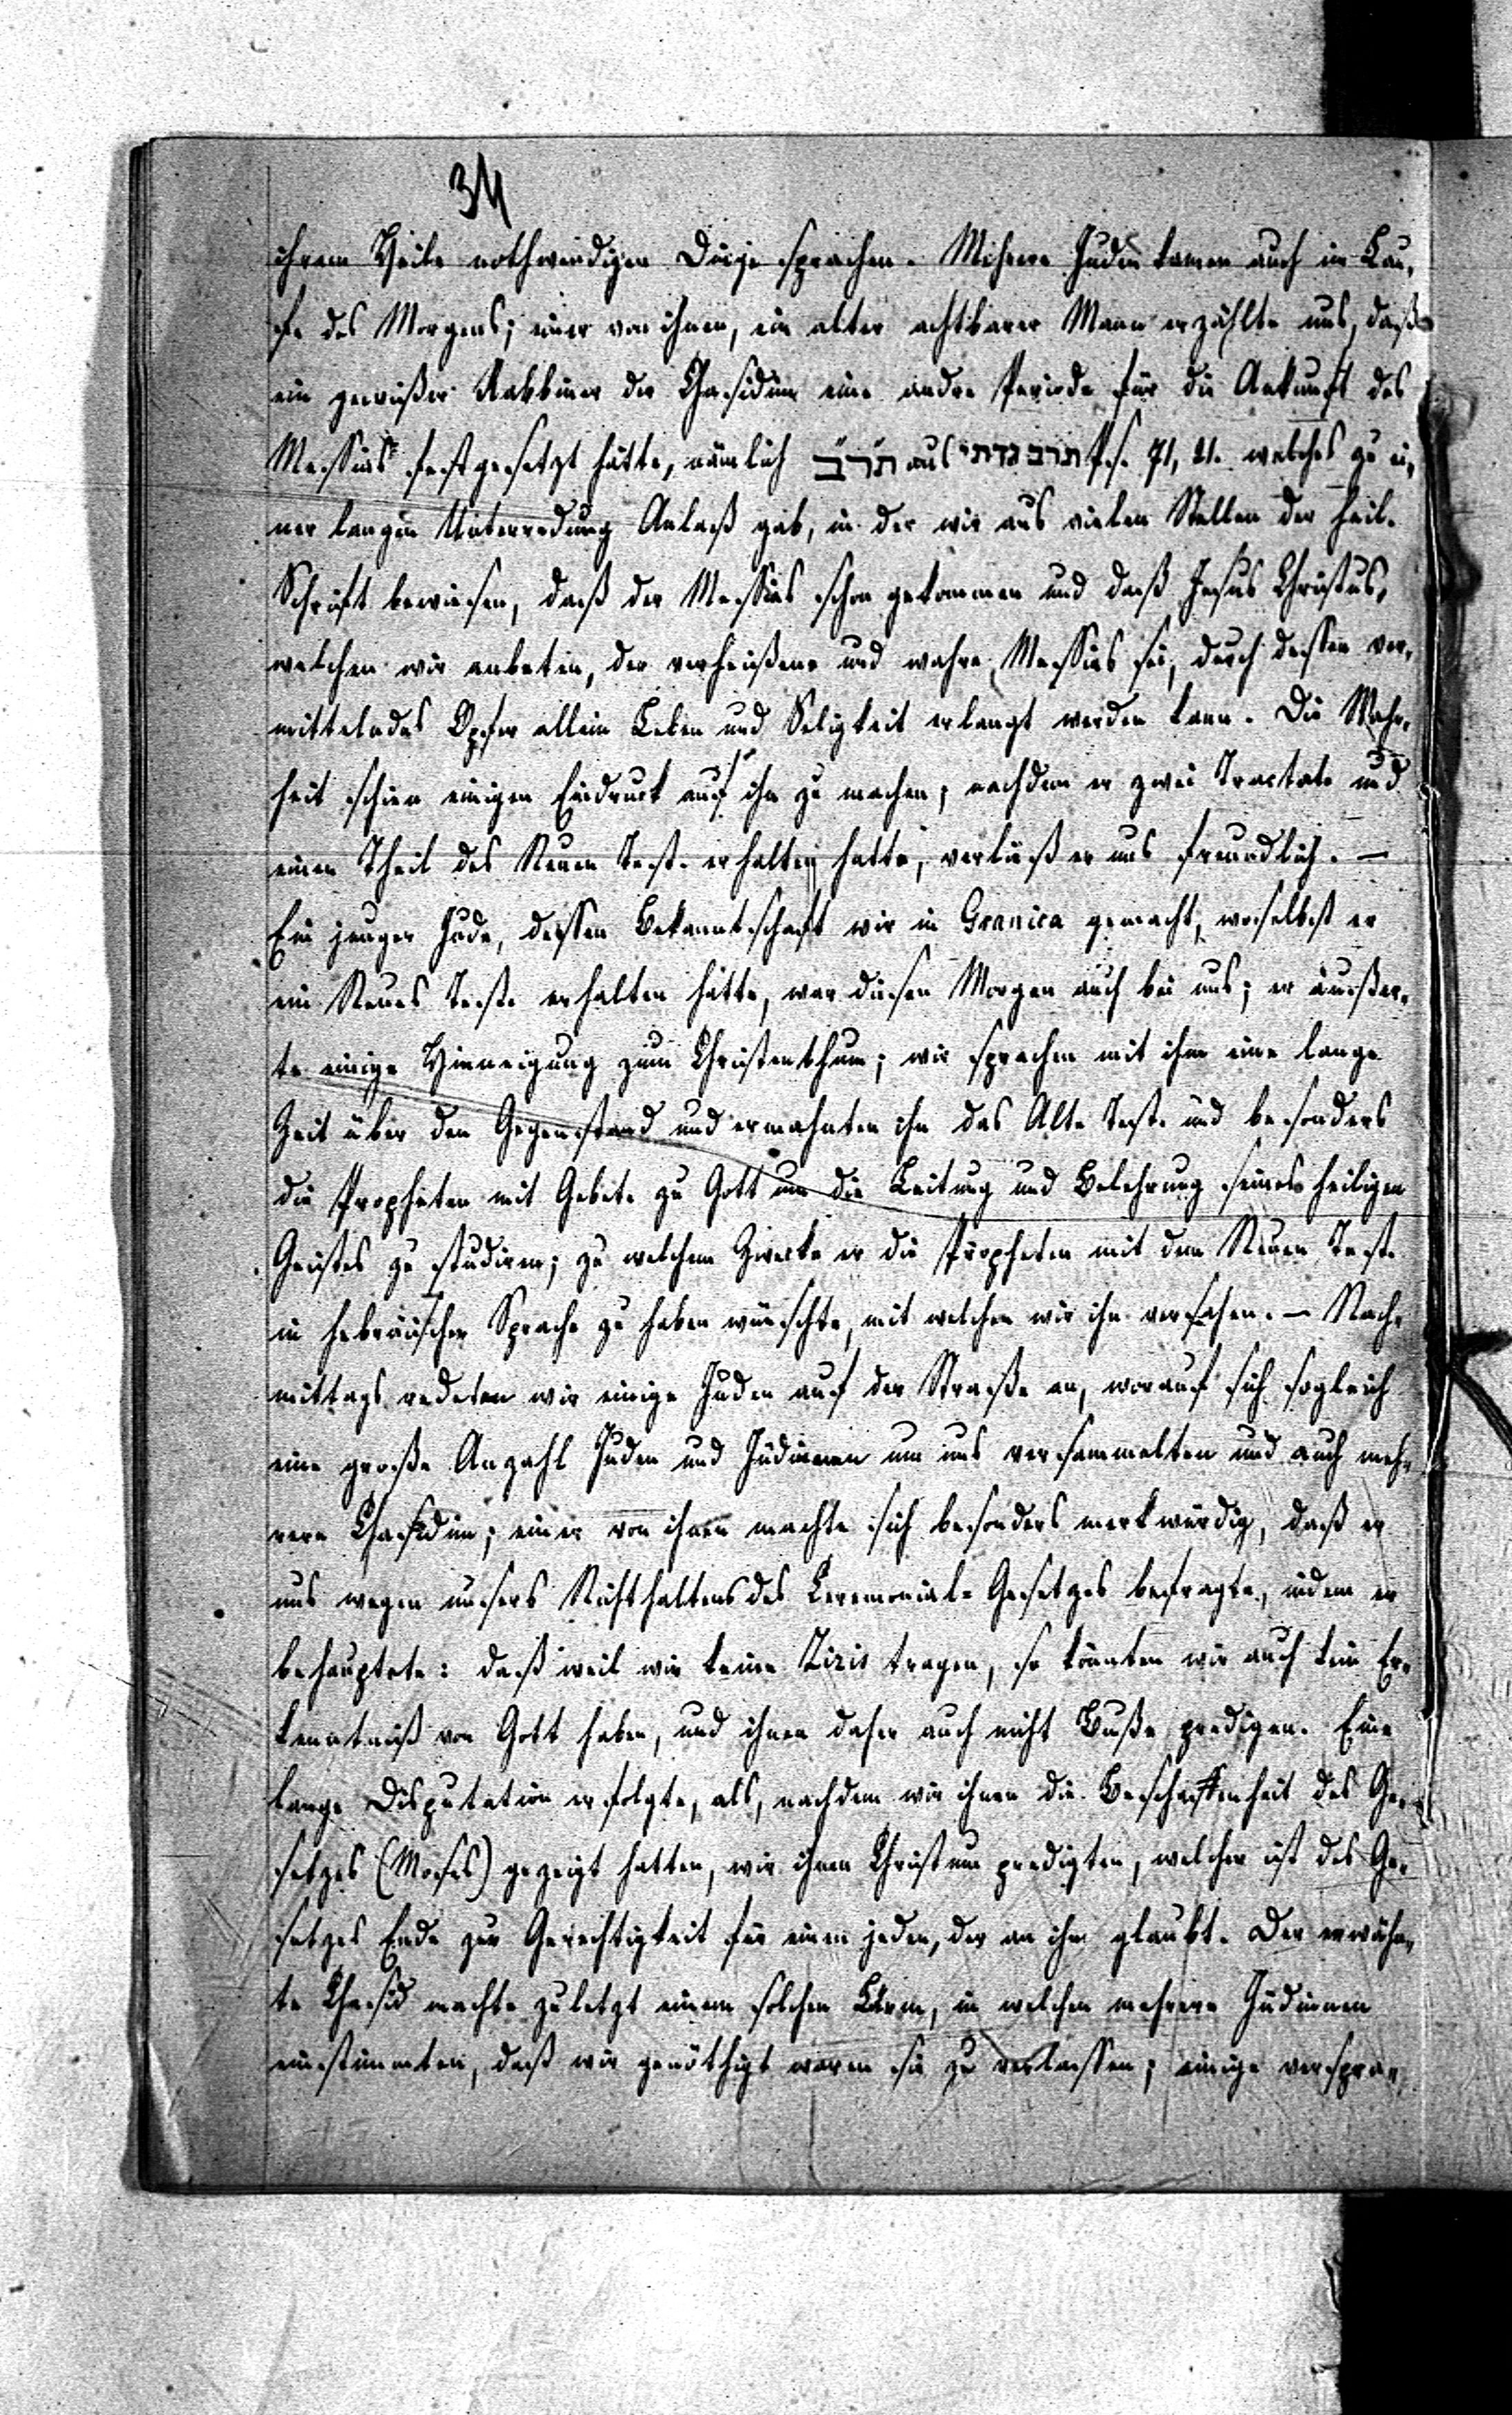 34
ihrem Heile nothwendigen Dinge sprachen. Mehrere Juden kamen auch im Lau-
fe des Morgens; einer von ihnen, ein alter achtbarer Mann erzählte uns, daß
ein gewißer Rabbiner der Chasidim eine andre Periode für die Ankunft des
Messias festgesetzt hätte, nämlich תר״ב aus תרב גדלתי Ps. 71, 21. welches zu ei-
ner langen Unterredung Anlaß gab, in der wir aus vielen Stellen der heil.
Schrift bewiesen, daß der Messias schon gekommen und daß Jesus Christus,
welchen wir anbeten, der verheißene und wahre Messias sei, durch dessen ver-
mittelndes Opfer allein Leben und Seligkeit erlangt werden kann. Die Wahr-
heit schien einigen Eindruck auf ihn zu machen; nachdem er zwei Tractate und
einen Theil des Neuen Test. erhalten hatte, verließ er uns freundlich. —
Ein junger Jude, dessen Bekanntschaft wir in Granica gemacht, woselbst er
ein Neues Test. erhalten hatte, war diesen Morgen auch bei uns; er äußer-
te einige Hinneigung zum Christenthum; wir sprachen mit ihm eine lange
Zeit über den Gegenstand und ermahnten ihn das Alte Test. und besonders
die Propheten mit Gebete zu Gott um die Leitung und Belehrung seines heiligen
Geistes zu studiren; zu welchem Zwecke er die Propheten mit dem Neuen Test.
in hebräischer Sprache zu haben wünschte, mit welchen wir ihn versahen. — Nach-
mittags redeten wir einige Juden auf der Straße an, worauf sich sogleich
eine große Anzahl Juden und Jüdinnen um uns versammelten und auch meh-
rere Chasidim; einer von ihnen machte sich besonders merkwürdig, daß er
uns wegen unsers Nichthaltens des Ceremonial-Gesetzes befragte, indem er
behauptete: daß weil wir keine Zizis tragen, so könnten wir auch kein Er-
kenntniß von Gott haben, und ihnen daher auch nicht Buße predigen. Eine
lange Disputation erfolgte, als, nachdem wir ihnen die Beschaffenheit des Ge-
setzes (Moses) gezeigt hatten, wir ihnen Christum predigten, welcher ist des Ge-
setzes Ende zur Gerechtigkeit für einen jeden, der an ihn glaubt. Der erwähn-
te Chasid machte zuletzt einem solchen Lärm, in welchen mehrere Jüdinnen
einstimmten, daß wir genöthigt waren sie zu verlassen; einige verspra-